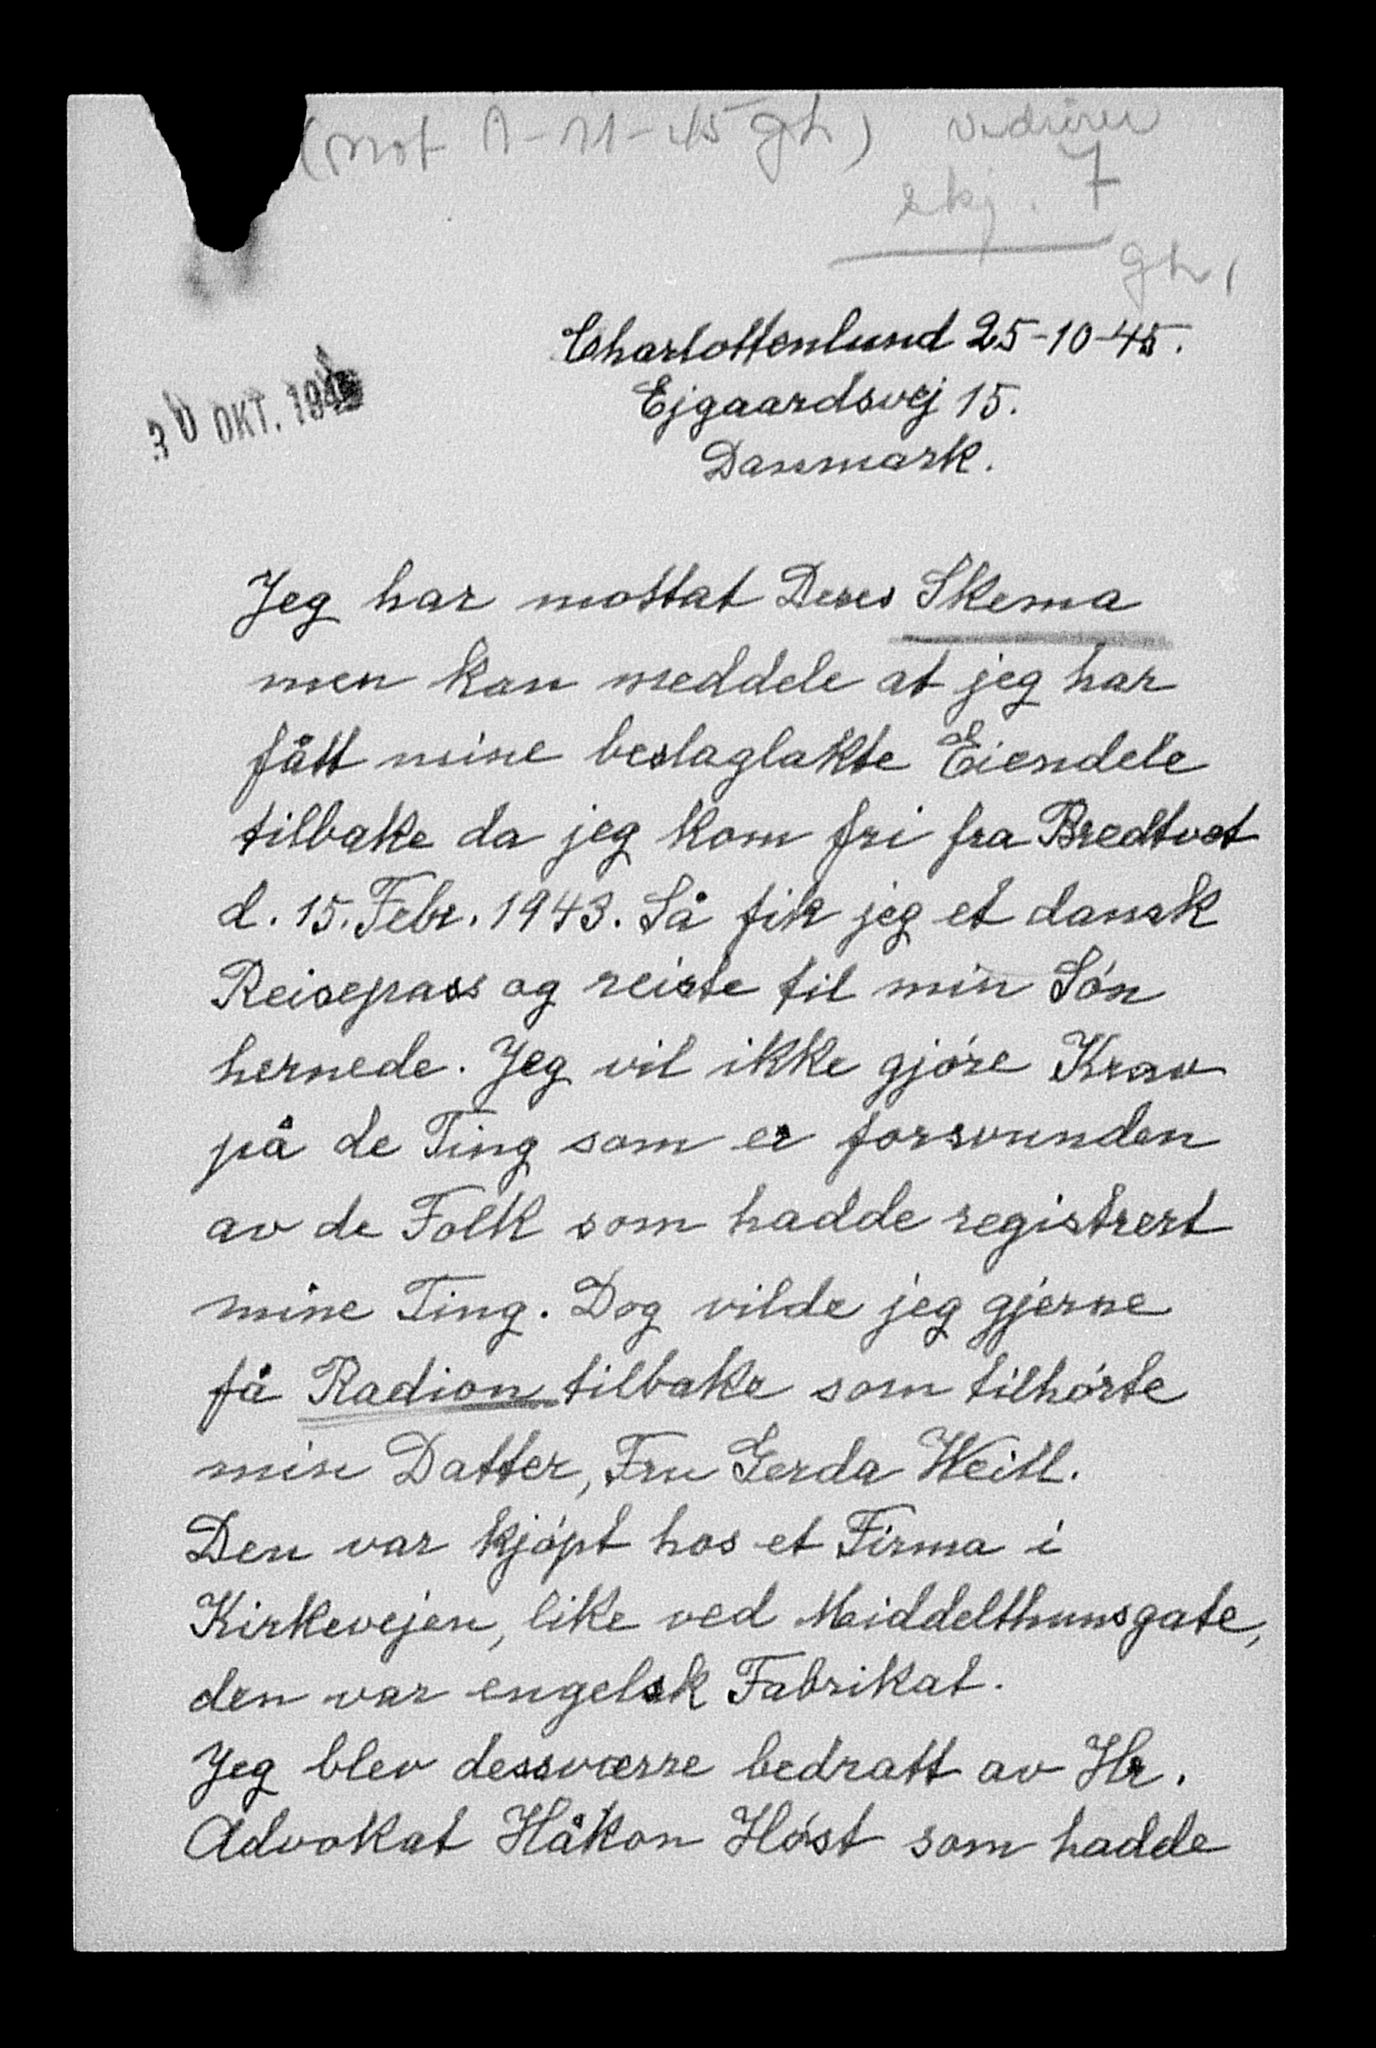 (Mot 1-11-45 gh) vedrører
skj. 7
gh,
30 OKT. 1945
Charlottenlund 25-10-45.
Ejgaardsvej 15.
Danmark.
Jeg har mottat Deres Skema
men kan meddele at jeg har
fått mine beslaglakte Eiendele
tilbake da jeg kom fri fra Bredtvet
d. 15. Febr. 1943. Så fik jeg et dansk
Reisepass og reiste til min Søn
hernede. Jeg vil ikke gjøre Krav
på de Ting som er forsvunden
av de Folk som hadde registrert
mine Ting. Dog vilde jeg gjerne
få Radion tilbake som tilhørte
min Datter, Fru Gerda Weill.
Den var kjøpt hos et Firma i
Kirkevejen, like ved Middelthunsgate,
den var engelsk Fabrikat.
Jeg blev dessværre bedratt av Hr.
Advokat Håkon Høst som hadde